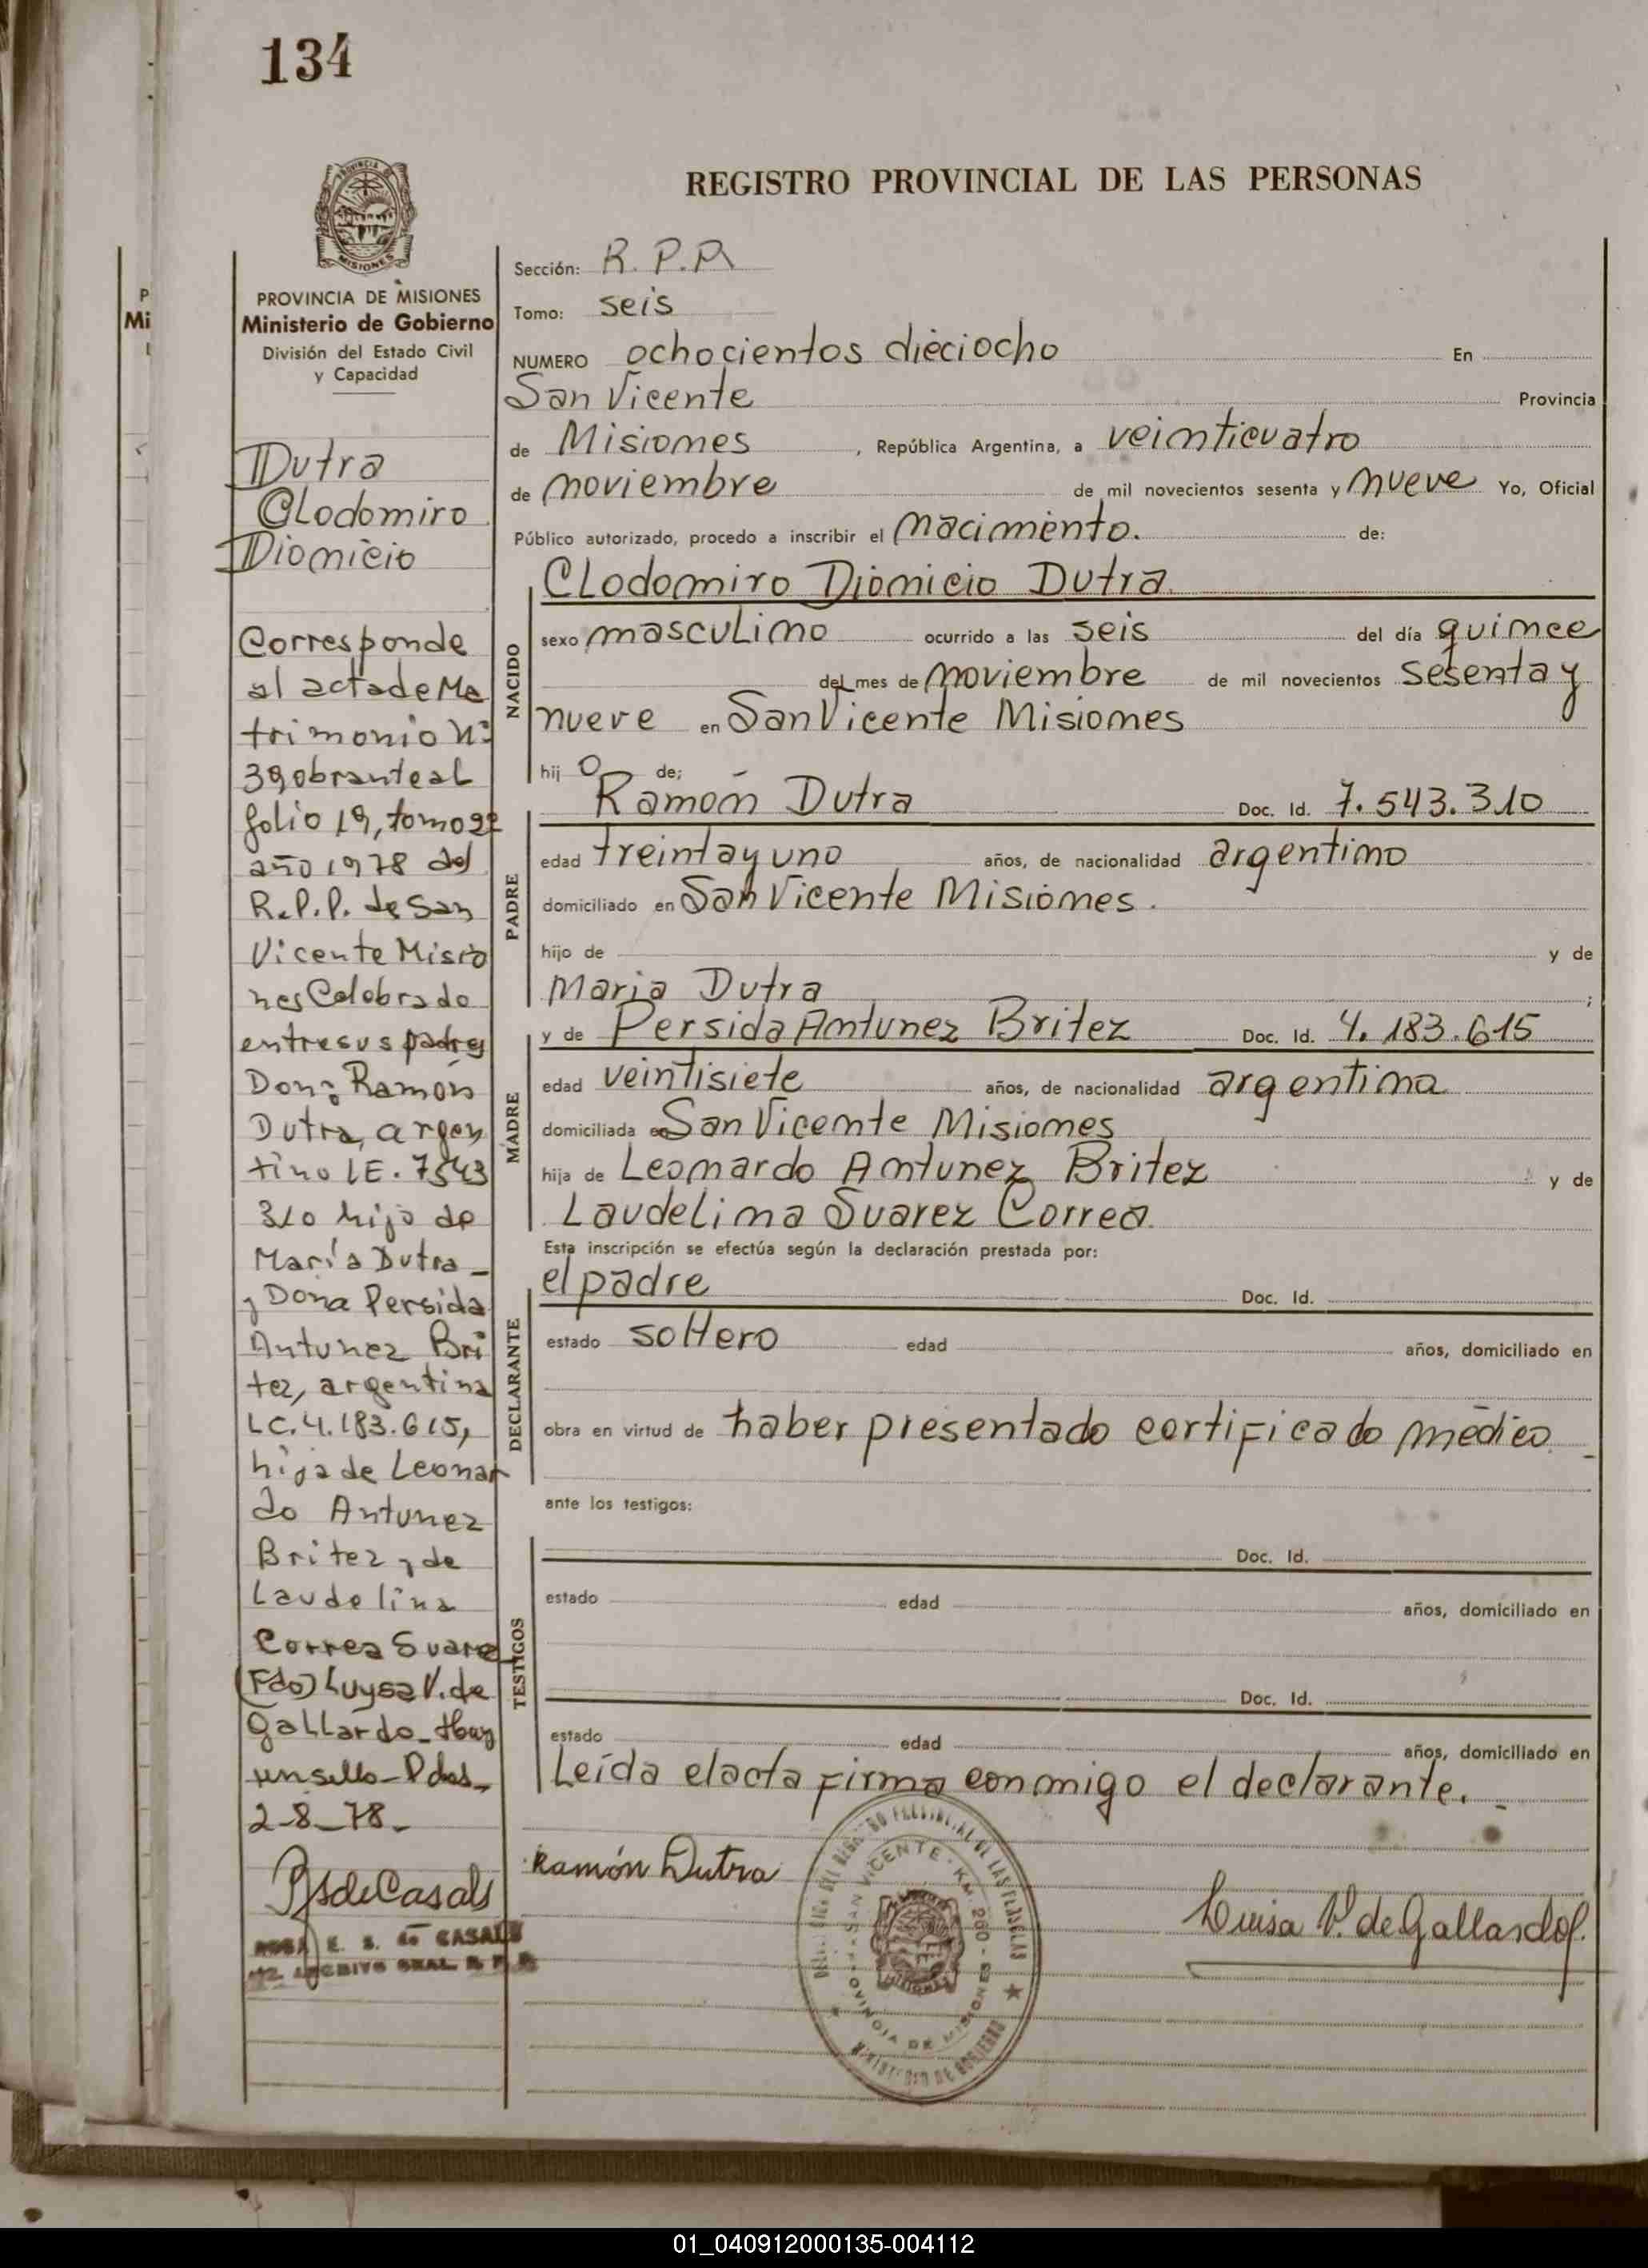 134
REGISTRO PROVINCIAL DE LAS PERSONAS
PROVINCIA
MISIONES
PROVINCIA DE MISIONES
Ministerio de Gobierno
División del Estado Civil
y Capacidad
Dutra
Clodomiro
Dionicio
Corresponde
al acta de Ma
trimonio Nº
39 obrante al
folio 19, tomo 2º
año 1978 del
R.P.P. de San
Vicente Misio
nes Celebrado
entre sus padres
Don: Ramón
Dutra, argen
tino LE. 7543
310 hijo de
María Dutra_
y Doña Persida
Antunez Bri
tez, argentina
LC. 4.183.615,
hija de Leonar
do Antunez
Britez y de
Laudelina
Correa Suare
(Fdo) Luysa V. de
Gallardo_Hay
un sello_Pdas_
2_8_78_
RSdeCasals
ROSA E. S. de CASALS
ARCHIVO GRAL. R. P. P.
Sección: R.P.P.
Tomo: seis
NUMERO ochocientos dieciocho En
San Vicente Provincia
de Misiones, República Argentina, a veinticuatro
de noviembre de mil novecientos sesenta y nueve Yo, Oficial
Público autorizado, procedo a inscribir el nacimiento. de:
NACIDO
Clodomiro Dionicio Dutra
sexo masculino ocurrido a las seis del día quince
del mes de noviembre de mil novecientos sesenta y
nueve en San Vicente Misiones
hij o de;
PADRE
Ramón Dutra Doc. Id. 7.543.310
edad treinta y uno años, de nacionalidad argentino
domiciliado en San Vicente Misiones.
hijo de y de
Maria Dutra ;
MADRE
y de Persida Antunez Britez Doc. Id. 4.183.615
edad veintisiete años, de nacionalidad argentina
domiciliada en San Vicente Misiones
hija de Leonardo Antunez Britez y de
Laudelina Suarez Correa.
Esta inscripción se efectúa según la declaración prestada por:
DECLARANTE
el padre Doc. Id.
estado soltero edad años, domiciliado en
obra en virtud de haber presentado certificado médico
ante los testigos:
TESTIGOS
Doc. Id.
estado edad años, domiciliado en
Doc. Id.
estado edad años, domiciliado en
Leída el acta firma conmigo el declarante.
Ramón Dutra
DEL REGISTRO PROVINCIAL DE LAS PERSONAS
SAN VICENTE - KM 200 -
PROVINCIA DE MISIONES
MINISTERIO DE GOBIERNO
Luisa V. de Gallardo
P
Mi
01_040912000135-004112